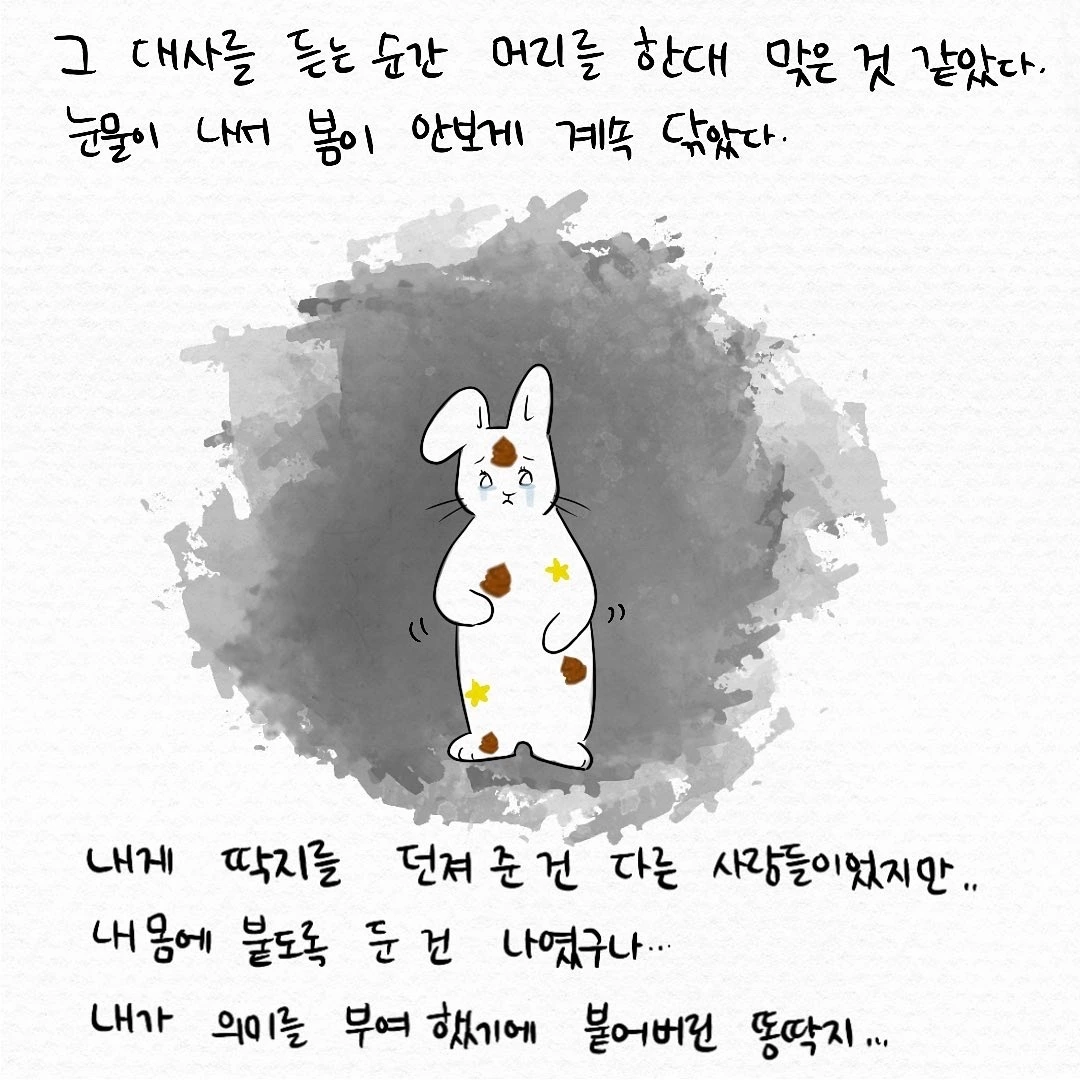 그 대사를 듣는 순간 머리를 한대 맞은 것 같았다.
눈물이 나서 봄이 안보게 계속 닦았다.
내게 딱지를 던져 준 건 다른 사람들이었지만..
내 몸에 붙도록 둔 건 나였구나...
내가 의미를 부여 했기에 붙어버린 똥딱지...